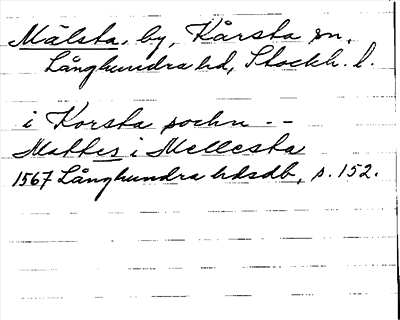 Mälsta, by, Kårsta sn,
Långhundra hd, Stockh. l.
i Korsta sochn --
Mattes i Mellesta
1567 Långhundra hdsdb, s. 152.